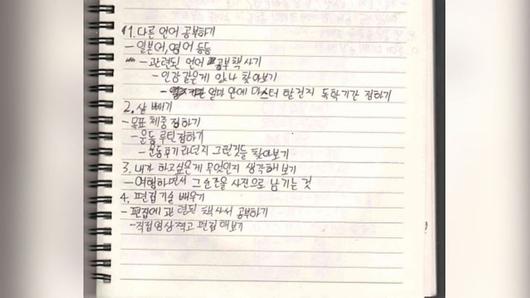 1. 다른 언어 공부하기
- 일본어, 영어 등등
- 관련된 언어 공부 책 사기
- 인강 같은게 있나 찾아보기
- 얼마 안에 마스터 할건지 독학기간 정하기
2. 살 빼기
- 목표 체중 정하기
- 운동 루틴 정하기
- 운동 후기라던지 그런것들 찾아보기
3. 내가 하고싶은게 무엇인지 생각해보기
- 여행하면서 그 순간을 사진으로 남기는 것
4. 편집 기술 배우기
- 편집에 관련된 책 사서 공부하기
- 직접 영상 찍고 편집 해보기